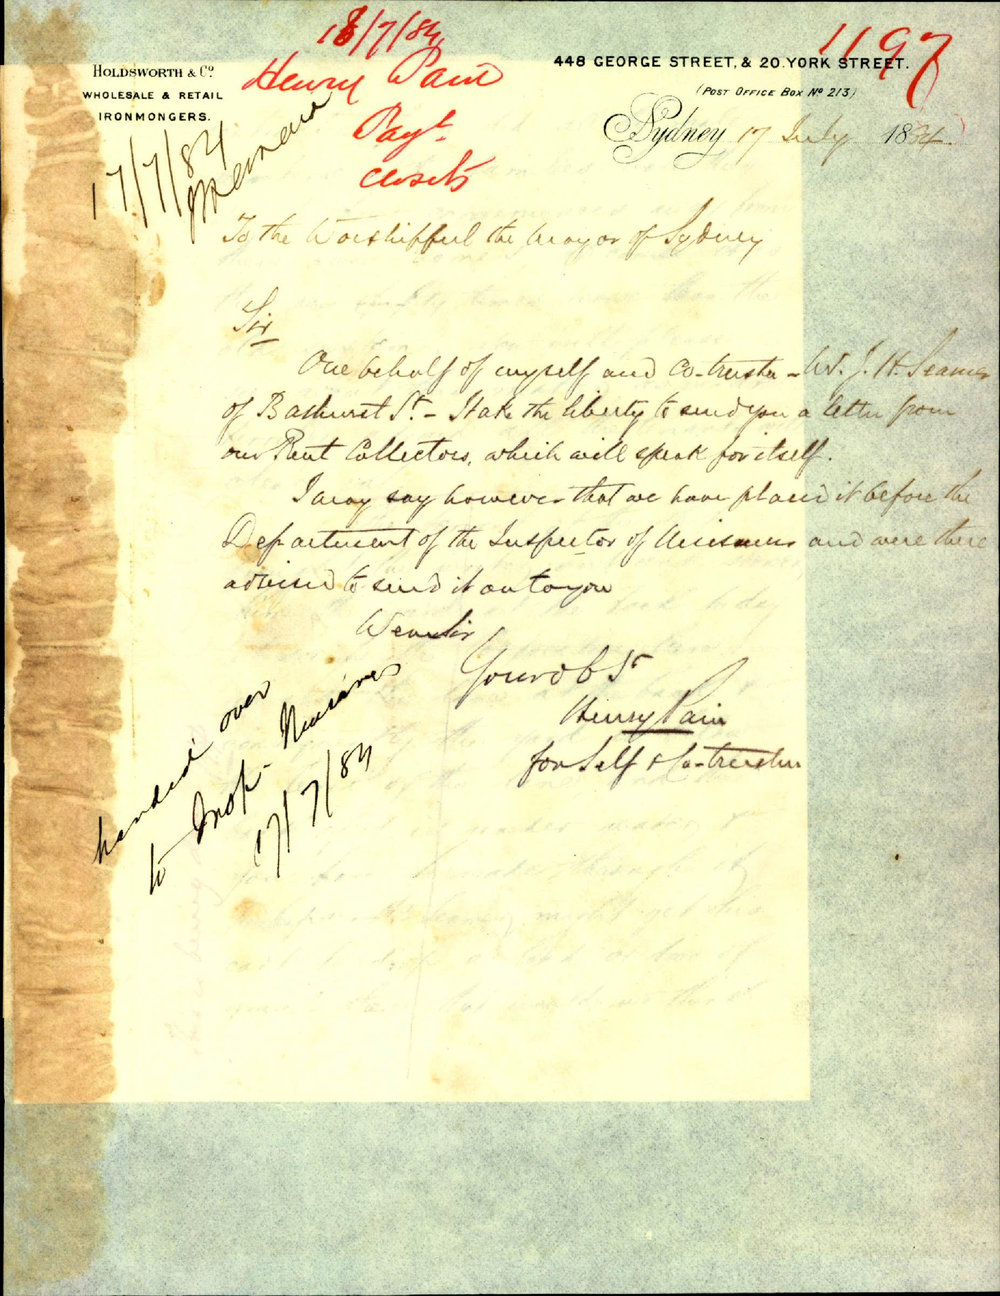 18/7/84
1197
Henry Pain
Payt.
Closets
HOLDSWORTH & Co.
WHOLESALE & RETAIL
IRONMONGERS.
448 GEORGE STREET, & 20 YORK STREET.
(POST OFFICE BOX No 213)
Sydney 17 July 1884
17/7/84
To the Worshipful the Mayor of Sydney
Sir
One behalf of myself and Co-trustee - Mr. J. H. Seamer
of Bathurst St - I take the liberty to send you a letter from
our Rent Collectors, which will speak for itself.
I may say however that we have placed it before the
Department of the Inspector of Nuisances and were there
advised to send it on to you
We are Sir
Your ob St
Henry Pain
for Self & Co-trustee
handed over
to Insp. Nuisances
17/7/84